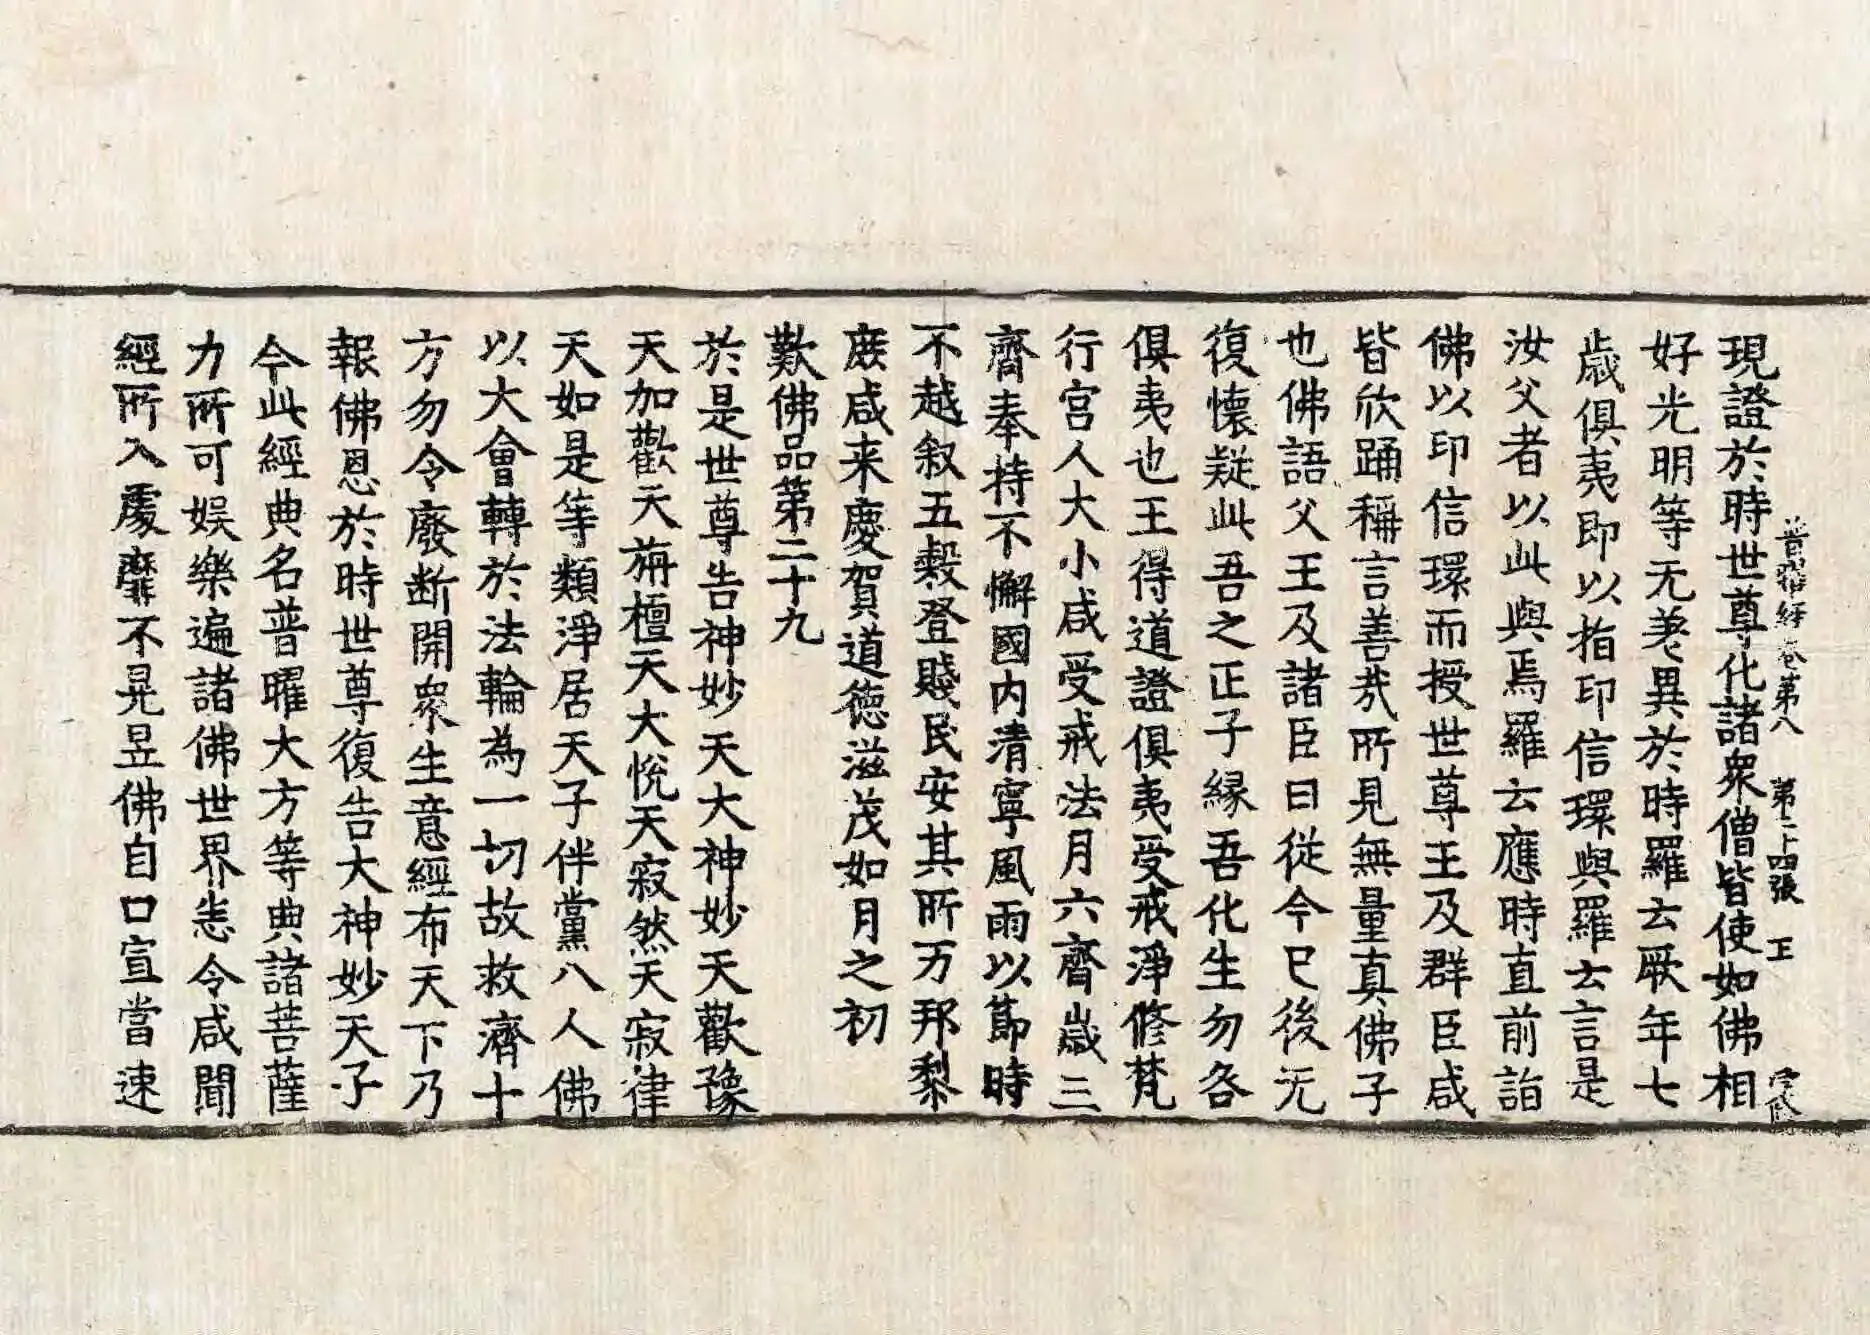 普曜經卷第八 第二十四張 王
現證於時世尊化諸衆僧皆使如佛相
好光明等无差異於時羅云厥年七
歲俱夷即以指印信環與羅云言是
汝父者以此與焉羅云應時直前詣
佛以印信環而授世尊王及群臣咸
皆欣踊稱言善哉所見無量真佛子
也佛語父王及諸臣曰從今已後无
復懷疑此吾之正子緣吾化生勿咎
俱夷也王得道證俱夷受戒淨修梵
行宮人大小咸受戒法月六齋歲三
齋奉持不懈國內清寧風雨以節時
不越叙五穀登賤民安其所万邦黎
庶咸来慶賀道德滋茂如月之初
歎佛品第二十九
於是世尊告神妙天大神妙天歡豫
天加歡天旃檀天大悅天寂然天寂律
天如是等類淨居天子伴黨八人佛
以大會轉於法輪為一切故救濟十
方勿令廢断開衆生意經布天下乃
報佛恩於時世尊復告大神妙天子
今此經典名普曜大方等典諸菩薩
力所可娱樂遍諸佛世界恙令咸聞
經所入處靡不晃昱佛自口宣當速